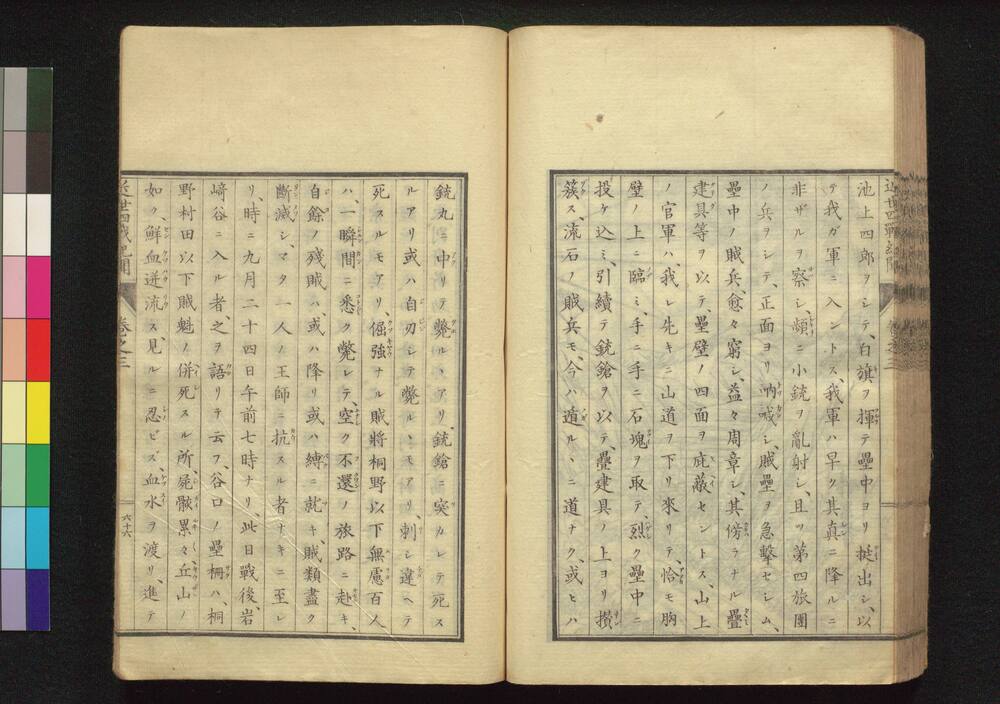 池上四郎ヲシテ、白旗ヲ揮テ壘中ヨリ挺出シ、以
テ我ガ軍ニ入ントス、我軍ハ早ク其真ニ降ルニ
非ザルヲ察シ、頻ニ小銃ヲ亂射シ、且ツ第四旅團
ノ兵ヲシテ、正面ヨリ吶喊シ、賊壘ヲ急撃セシム、
壘中ノ賊兵、愈々窮シ、益々周章シ、其傍ラナル疊
建具等ヲ以テ、壘壁ノ四面ヲ庇蔽セントス、山上
ノ官軍ハ、我レ先キニ山道ヲ下リ來リテ、恰モ胸
壁ノ上ニ臨ミ、手ニ手ニ石塊ヲ取テ、烈ク壘中ニ
投ケ込ミ、引續テ銃鎗ヲ以テ疊建具ノ上ヨリ攢
簇ス、流石ノ賊兵モ、今ハ遁ルヽニ道ナク、或ヒハ
銃丸ニ中リテ斃ルヽアリ、銃鎗ニ突カレテ死ス
ルアリ或ハ自刃シテ斃ルヽモアリ、刺シ違ヘテ
死スルモアリ、倔強ナル賊將桐野以下無慮百人
ハ、一瞬間ニ悉ク斃レテ、空ク不還ノ旅路ニ赴キ、
自餘ノ殘賊ハ、或ハ降リ或ハ縛ニ就キ、賊類盡ク
斷滅シ、マタ一人ノ王師ニ抗スル者ナキニ至レ
リ、時ニ九月二十四日午前七時ナリ、此日戰後、岩
﨑谷ニ入ル者、之ヲ語リテ云フ、谷口ノ壘柵ハ、桐
野村田以下賊魁ノ併死スル所、屍骸累々丘山ノ
如ク、鮮血迸流ス、見ルニ忍ビズ、血水ヲ渡リ、進テ
卷之三
六十六